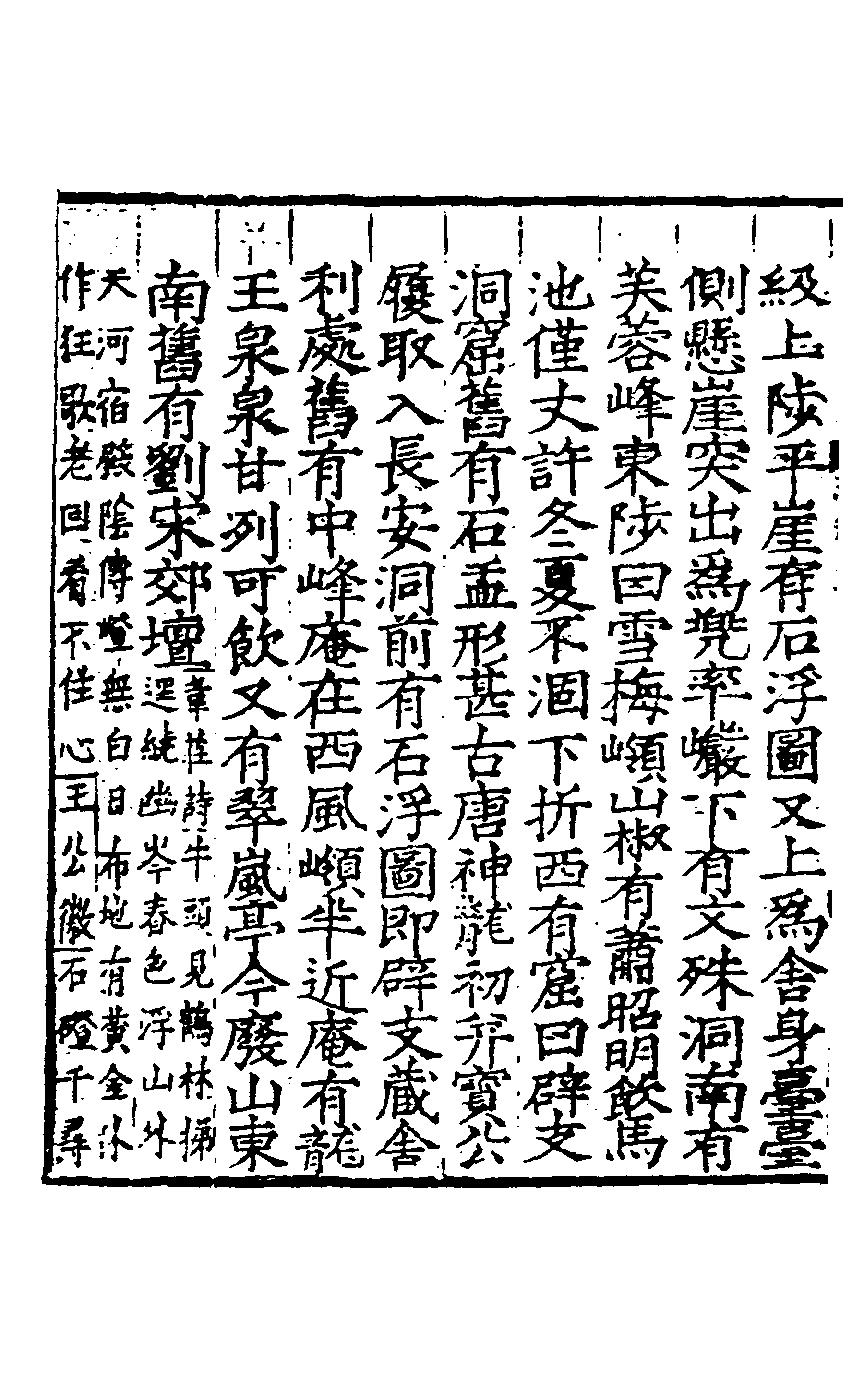 級上陟平崖有石浮圖又上爲舍身臺臺
側懸崖突出爲兠率巗下有文殊洞南有
芙蓉峰東陟曰雪梅嶺山椒有蕭昭明飲馬
池僅丈許冬夏不涸下折西有窟曰辟支
洞窟舊有石盂形甚古唐神龍初并寶公
履取入長安洞前有石浮圖即辟支藏舍
利處舊有中峰庵在西風嶺半近庵有龍
王泉泉甘列可飲又有翠嵐亭今廢山東
南舊有劉宋郊壇
韋莊詩牛頭見鶴林梯
逕繞幽岑春色浮山外
天河宿殿陰傳燈無白日布地有黃金休
作狂歌老回看不住心王公徽石磴千尋